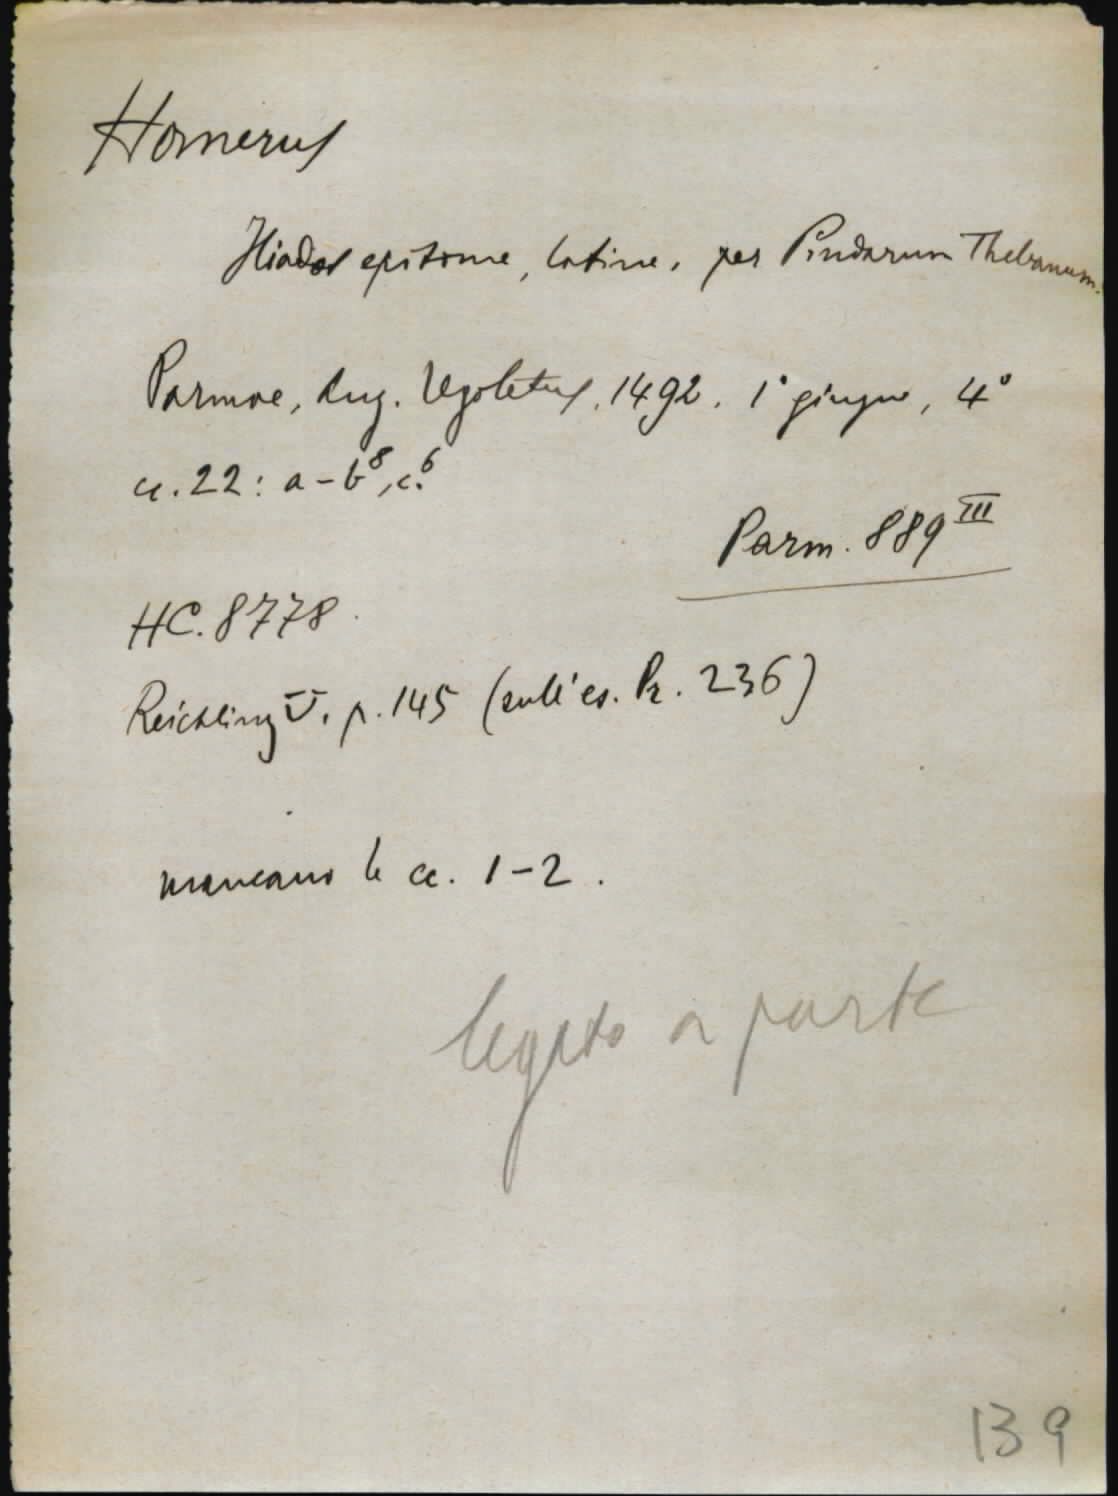 Homerus
Iliados epitome, latine, per Pindarum Thebanum.
Parmae, Ang. Ugoletus, 1492. 1° giugno, 4°
cc. 22: a-b⁸, c⁶.
Parm. 889 III
HC. 8778.
Reichling V, p. 145 (sull'es. Pr. 236)
mancano le cc. 1-2.
legato a parte
139